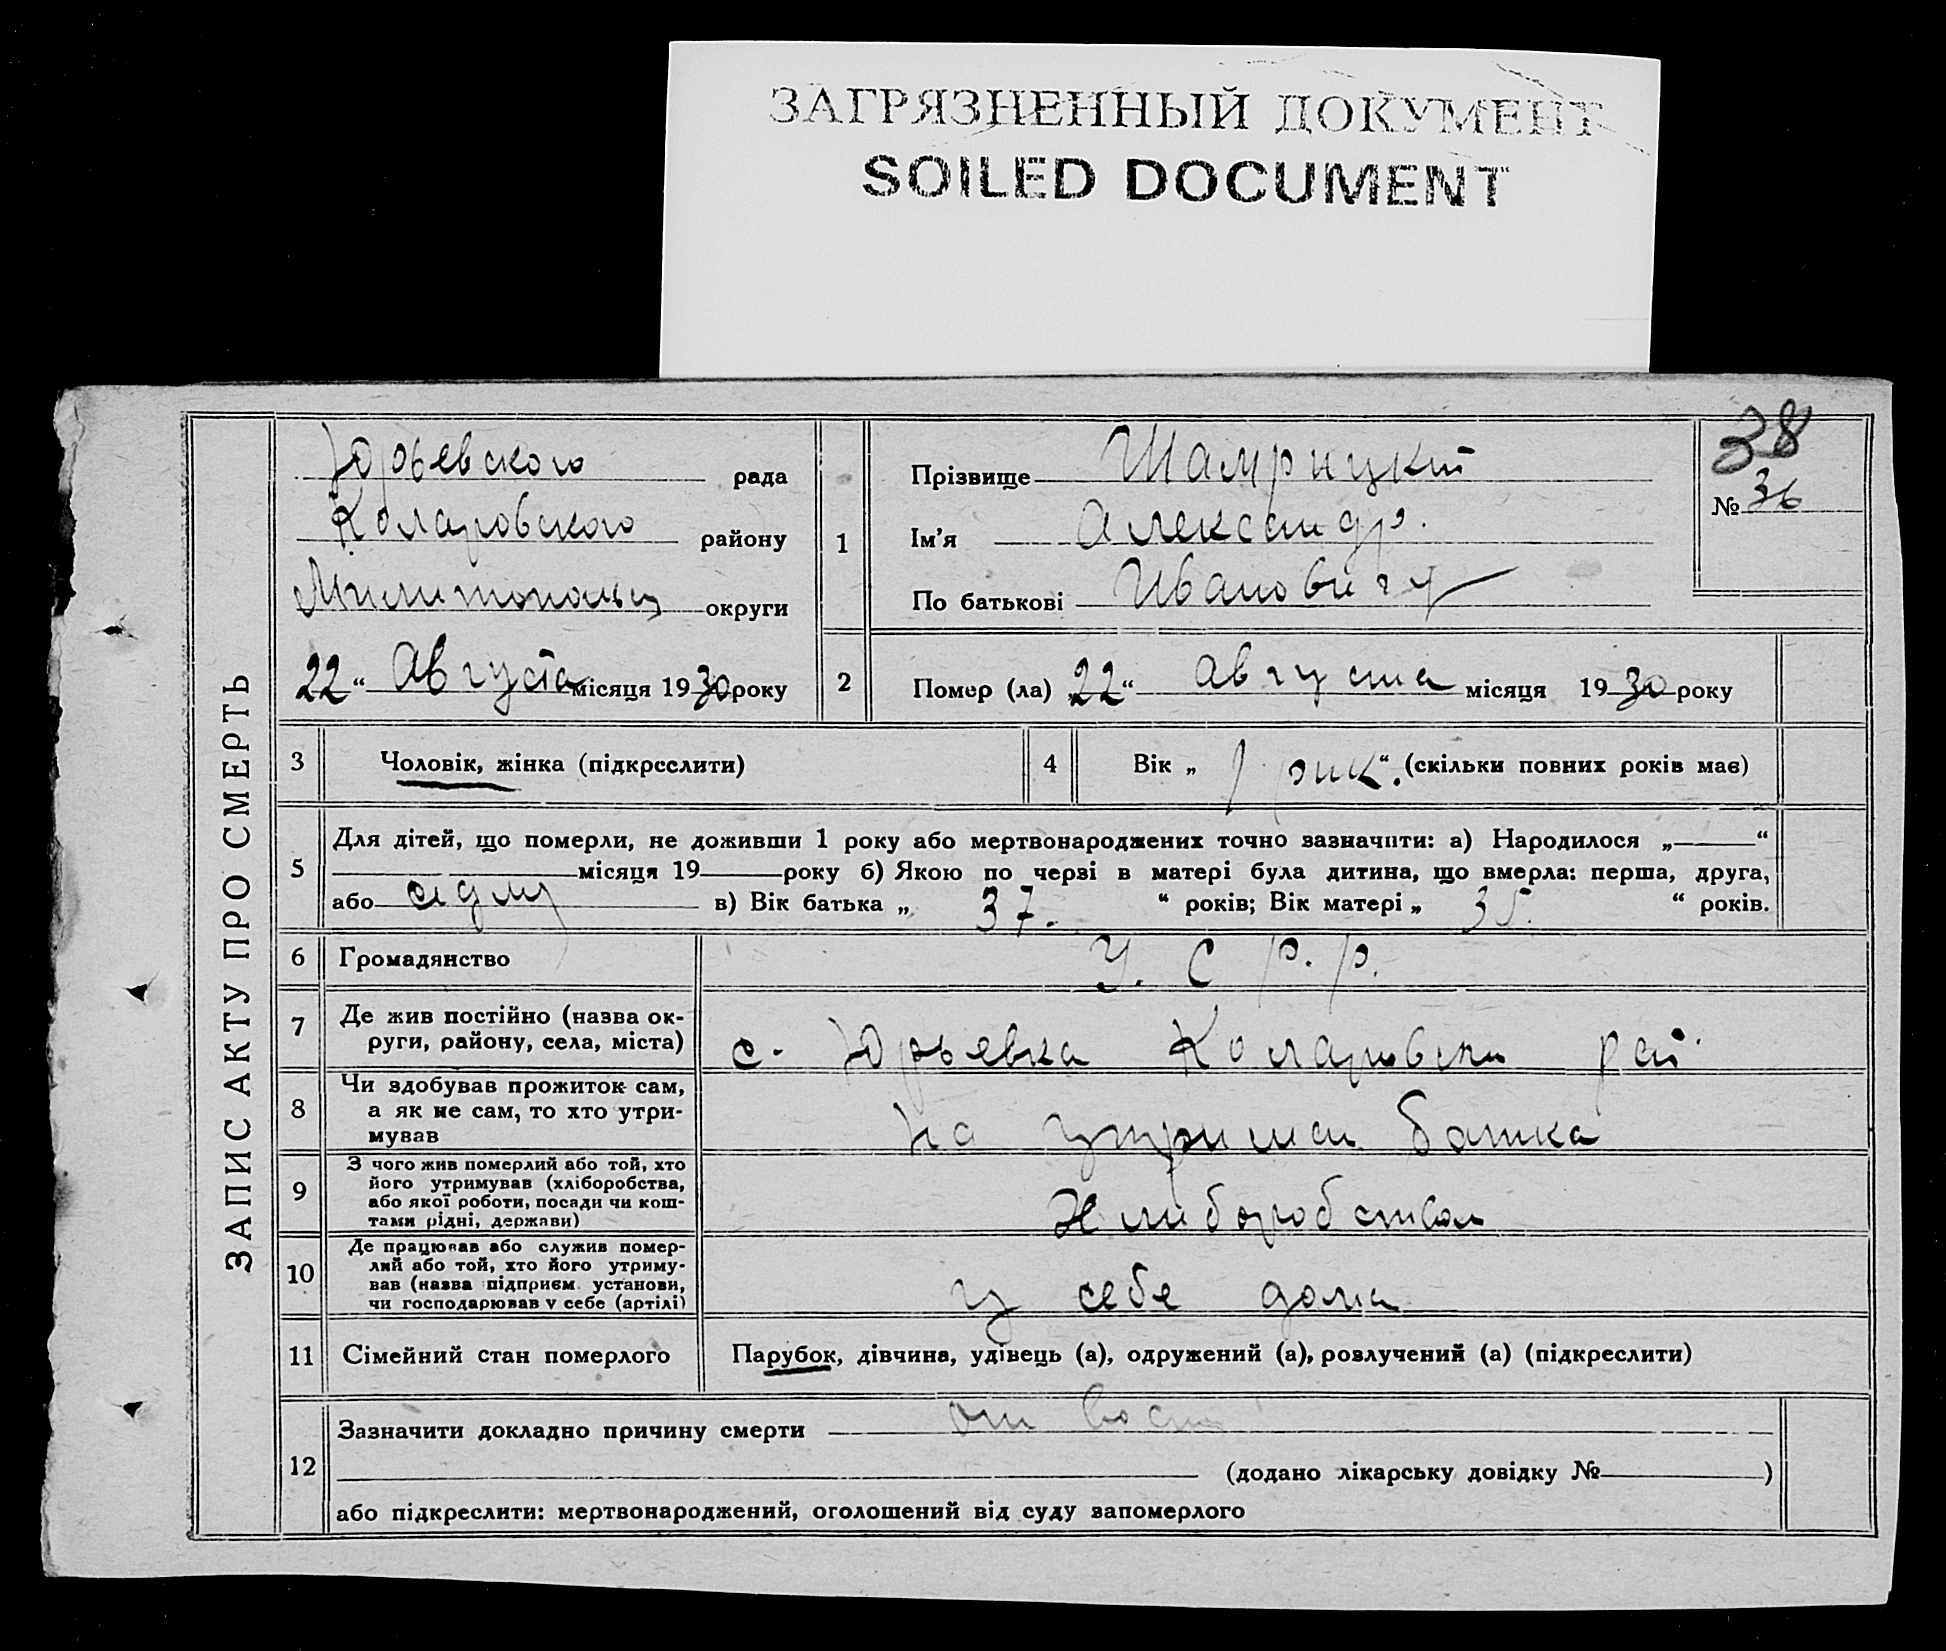 ЗАГРЯЗНЕННЫЙ ДОКУМЕНТ
SOILED DOCUMENT
ЗАПИС АКТУ ПРО СМЕРТЬ
Юрьевского рада
Коларовского району
округи
22 “ Августа місяця 1930 року
1
Прізвище Шамрицкий
Ім’я Александр.
По батькові Иванович
38
№ 36
2
Помер (ла) „22“ августа місяця 1930 року
3 Чоловік, жінка (підкреслити)
4 Вік „ 1 рик “. (скільки повних років має)
5 Для дітей, що померли, не доживши 1 року або мертвонароджених точно зазначити: а) Народилося „——“
місяця 19 року б) Якою по черзі в матері була дитина, що вмерла: перша, друга,
або в) Вік батька „ 37. “ років; Вік матері „ 35. “ років.
6 Громадянство У. С. Р. Р.
7 Де жив постійно (назва ок-
руги, району, села, міста)
с. Юрьевка Коларовски рай.
8 Чи здобував прожиток сам,
а як не сам, то хто утри-
мував
на утриман батка
9 З чого жив померлий або той, хто
його утримував (хліборобства,
або якої роботи, посади чи кош-
тами рідні, держави)
Хлиборобством
10 Де працював або служив помер-
лий або той, хто його утриму-
вав (назва підприєм. установи,
чи господарював у себе (артілі)
у себе дома
11 Сімейний стан померлого Парубок, дівчина, удівець (а), одружений (а), розлучений (а) (підкреслити)
12 Зазначити докладно причину смерти от
(додано лікарську довідку № )
або підкреслити: мертвонароджений, оголошений від суду запомерлого